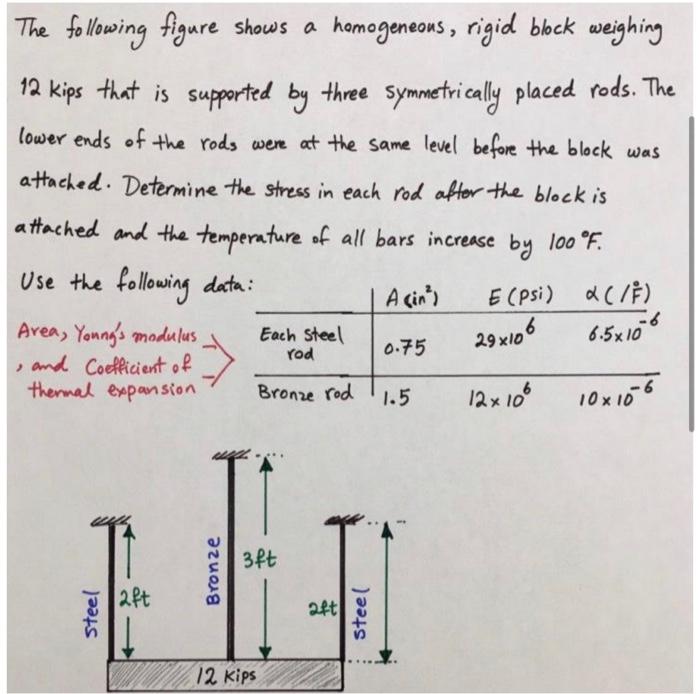 The following figure shows a homogeneous, rigid block weighing
12 kips that is supported by three symmetrically placed rods. The
lower ends of the rods were at the same level before the block was
attached. Determine the stress in each rod after the block is
attached and the temperature of all bars increase by 100 °F.
Use the following data:
A (in²) E (psi) α (/°F)
Area, Young's modulus
, and Coefficient of
thermal expansion
Each steel
rod
0.75 29×10⁶ 6.5×10⁻⁶
Bronze rod 1.5 12×10⁶ 10×10⁻⁶
Steel
2ft
Bronze
3ft
2ft
Steel
12 kips